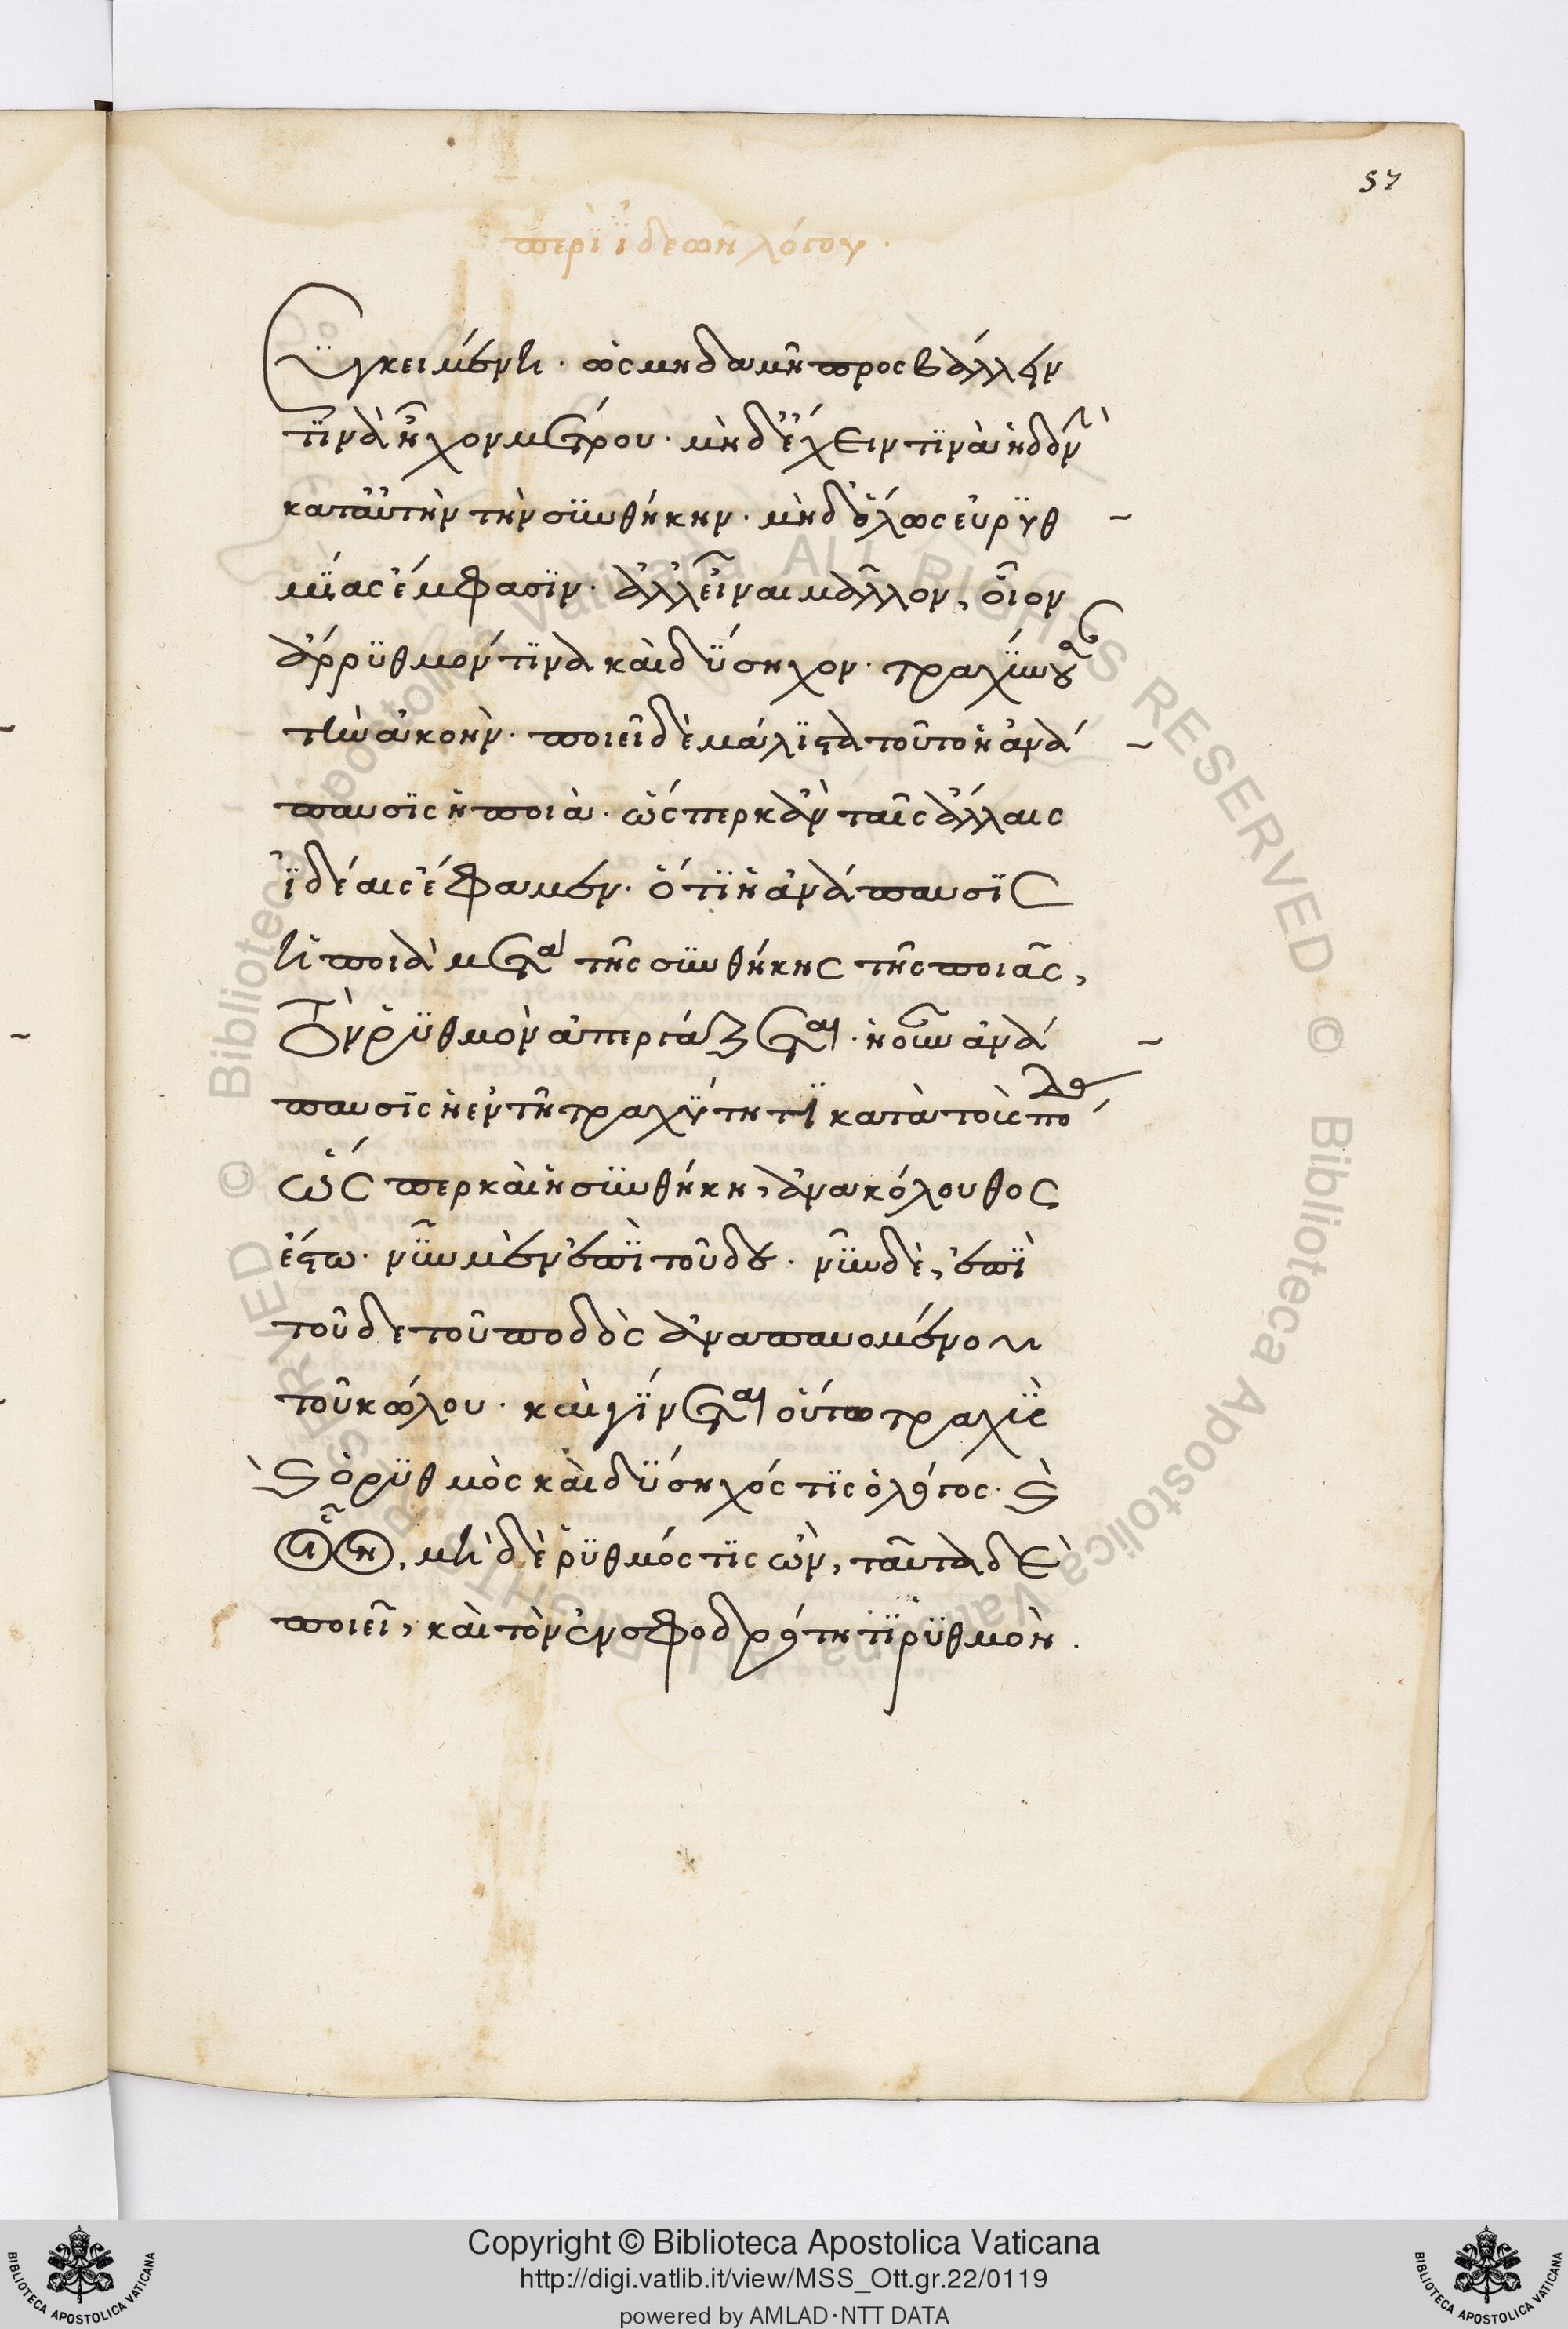 57
περὶ ἰδεῶν λόγου.
Συγκειμένη· ὡς μηδαμῆ προσβάλλειν
τινὰ ἦχον μέτρου· μὴδ ἔχειν τινὰ ἡδονὴν
κατ αὐτὴν τὴν συνθήκην· μὴδ ὅλως εὐρυθ
μίας ἔμφασιν· ἀλλ εἶναι μᾶλλον, οἷον
ἄρρυθμόν τινα καὶ δύσηχον· τραχύνουσαν
τὴν ἀκοήν· ποιεῖ δὲ μάλιστα τοῦτο ἡ ἀνά
παυσις ἡ ποιὰ· ὥσπερ κἀν ταῖς ἄλλαις
ἰδέαις ἔφαμεν· ὅτι ἡ ἀνάπαυσις
ἡ ποιὰ μετὰ τῆς συνθήκης τῆς ποιᾶς,
Τὸν ῥυθμὸν ἀπεργάζεται· ἡ οὖν ἀνά
παυσις ἡ ἐν τῆ τραχύτητι κατὰ τοὺς πόδας
ὥσπερ καὶ ἡ συνθήκη, ἀνακόλουθος
ἔστω· νῦν μὲν ἐπὶ τοῦδε· νῦν δὲ, ἐπὶ
τοῦδε τοῦ ποδὸς ἀναπαυομένου
τοῦ κώλου· καὶ γίνεται οὕτω τραχὺς
καὶ ὁ ῥυθμὸς καὶ δύσηχός τις ὁ λόγος· καὶ
μὴ δὲ ῥυθμός τις ὢν, ταῦτα δὲ
ποιεῖ, καὶ τὸν ἐν σφοδρότητι ῥυθμὸν.
Copyright © Biblioteca Apostolica Vaticana
http://digi.vatlib.it/view/MSS_Ott.gr.22/0119
powered by AMLAD·NTT DATA
BIBLIOTECA APOSTOLICA VATICANA
BIBLIOTECA APOSTOLICA VATICANA
© Biblioteca Apostolica Vaticana ALL RIGHTS RESERVED © Biblioteca Apostolica Vaticana ALL RIGHTS RESERVED